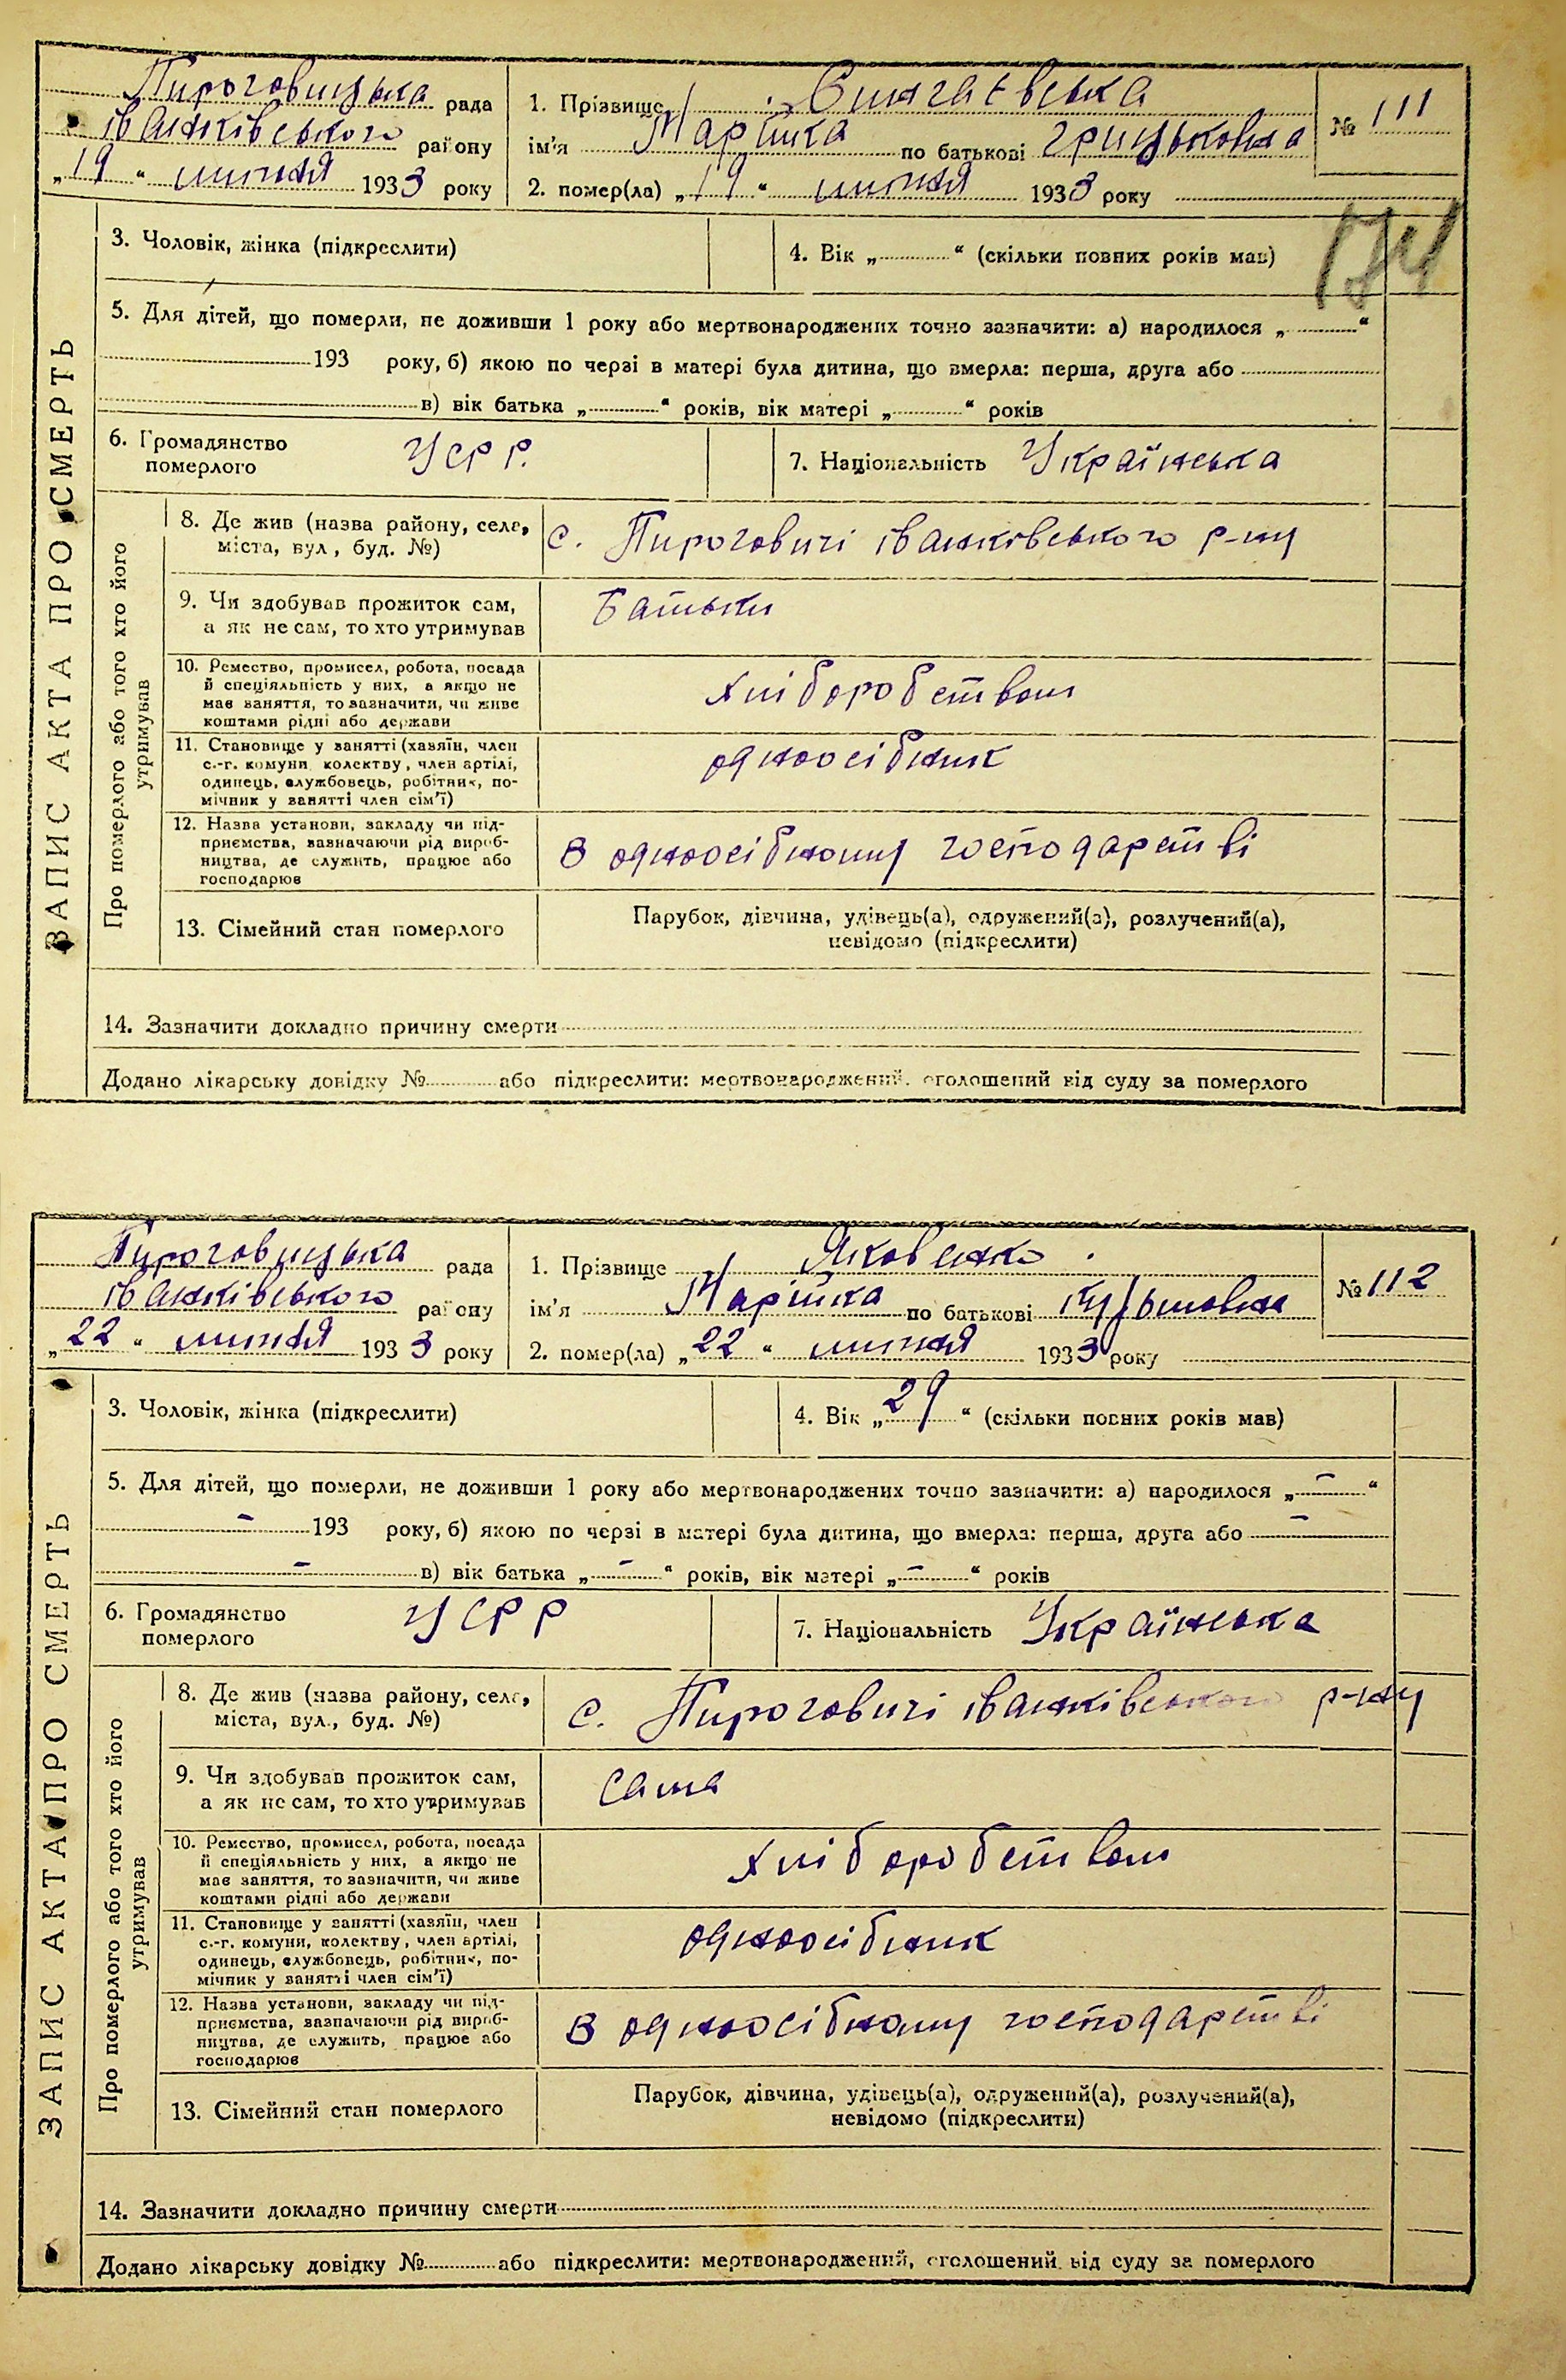 ЗАПИС АКТА ПРО СМЕРТЬ
Пироговицька рада
іванківського району
„19“ липня 1933 року
1. Прізвище Сингаєвська
ім'я Марійка по батькові грицьковна
2. помер(ла) „19“ липня 1933 року
№ 111
174
3. Чоловік, жінка (підкреслити)
4. Вік „ “ (скільки повних років мав)
5. Для дітей, що померли, не доживши 1 року або мертвонароджених точно зазначити: а) народилося „ “
193 року, б) якою по черзі в матері була дитина, що вмерла: перша, друга або
в) вік батька „ “ років, вік матері „ “ років
6. Громадянство
померлого
УСРР.
7. Національність Українська
Про померлого або того хто його
утримував
8. Де жив (назва району, села,
міста, вул, буд. №)
с. Пироговичі іванківського р-ну
9. Чи здобував прожиток сам,
а як не сам, то хто утримував
Батьки
10. Ремество, промисел, робота, посада
й спеціяльність у них, а якщо не
має заняття, то зазначити, чи живе
коштами рідні або держави
хліборобством
11. Становище у занятті (хазяїн, член
с.-г. комуни, колектву, член артілі,
одинець, службовець, робітник, по-
мічник у занятті член сім'ї)
одноосібник
12. Назва установи, закладу чи під-
приємства, зазначаючи рід вироб-
ництва, де служить, працює або
господарює
В одноосібному господарстві
13. Сімейний стан померлого
Парубок, дівчина, удівець(а), одружений(а), розлучений(а),
невідомо (підкреслити)
14. Зазначити докладно причину смерти
Додано лікарську довідку № або підкреслити: мертвонароджений, оголошений від суду за померлого
ЗАПИС АКТА ПРО СМЕРТЬ
Пироговицька рада
іванківського району
„22“ липня 1933 року
1. Прізвище Яковенко
ім'я Марійка по батькові Кузьмовна
2. помер(ла) „22“ липня 1933 року
№ 112
3. Чоловік, жінка (підкреслити)
4. Вік „29“ (скільки повних років мав)
5. Для дітей, що померли, не доживши 1 року або мертвонароджених точно зазначити: а) народилося „–“
– 193 року, б) якою по черзі в матері була дитина, що вмерла: перша, друга або –
– в) вік батька „–“ років, вік матері „–“ років
6. Громадянство
померлого
УСРР
7. Національність Українська
Про померлого або того хто його
утримував
8. Де жив (назва району, села,
міста, вул., буд. №)
с. Пироговичі іванківського р-ну
9. Чи здобував прожиток сам,
а як не сам, то хто утримував
Сама
10. Ремество, промисел, робота, посада
й спеціяльність у них, а якщо не
має заняття, то зазначити, чи живе
коштами рідні або держави
хліборобством
11. Становище у занятті (хазяїн, член
с.-г. комуни, колектву, член артілі,
одинець, службовець, робітник, по-
мічник у занятті член сім'ї)
одноосібник
12. Назва установи, закладу чи під-
приємства, зазначаючи рід вироб-
ництва, де служить, працює або
господарює
В одноосібному господарстві
13. Сімейний стан померлого
Парубок, дівчина, удівець(а), одружений(а), розлучений(а),
невідомо (підкреслити)
14. Зазначити докладно причину смерти
Додано лікарську довідку № або підкреслити: мертвонароджений, оголошений від суду за померлого